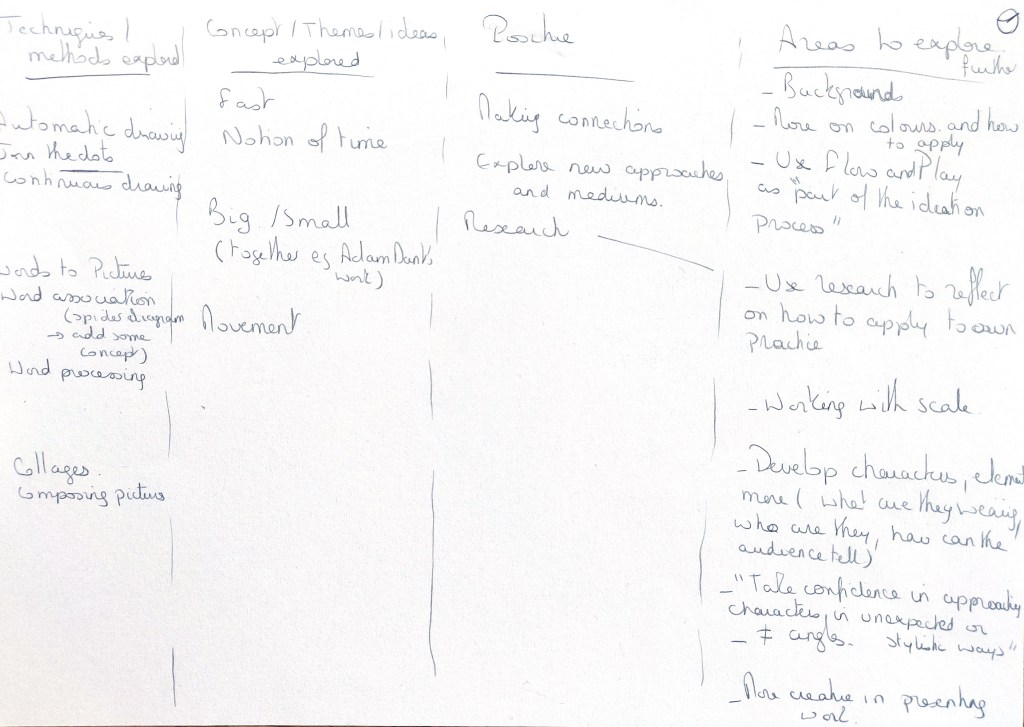 Techniques /
methods explored
Automatic drawing
Join the dots
Continuous drawing
Words to Pictures
Word association
(spider diagram
→ add some
concept)
Word processing
Collages.
Composing pictures
Concept / Themes / ideas
explored
Fast
Notion of time
Big / Small
(together eg Adam Dant's
work)
Movement
Practice
Making connections
Explore new approaches
and mediums.
Research
Areas to explore
further
- Backgrounds
- More on colours. and how
to apply
- Use Flow and Play
as "part of the ideation
process"
- Use research to reflect
on how to apply to own
practice
- Working with scale.
- Develop characters, element
more ( what are they wearing,
who are they, how can the
audience tell)
- "Take confidence in approaching
characters, in unexpected or
stylistic ways"
- ≠ angles.
- More creative in presenting
work.